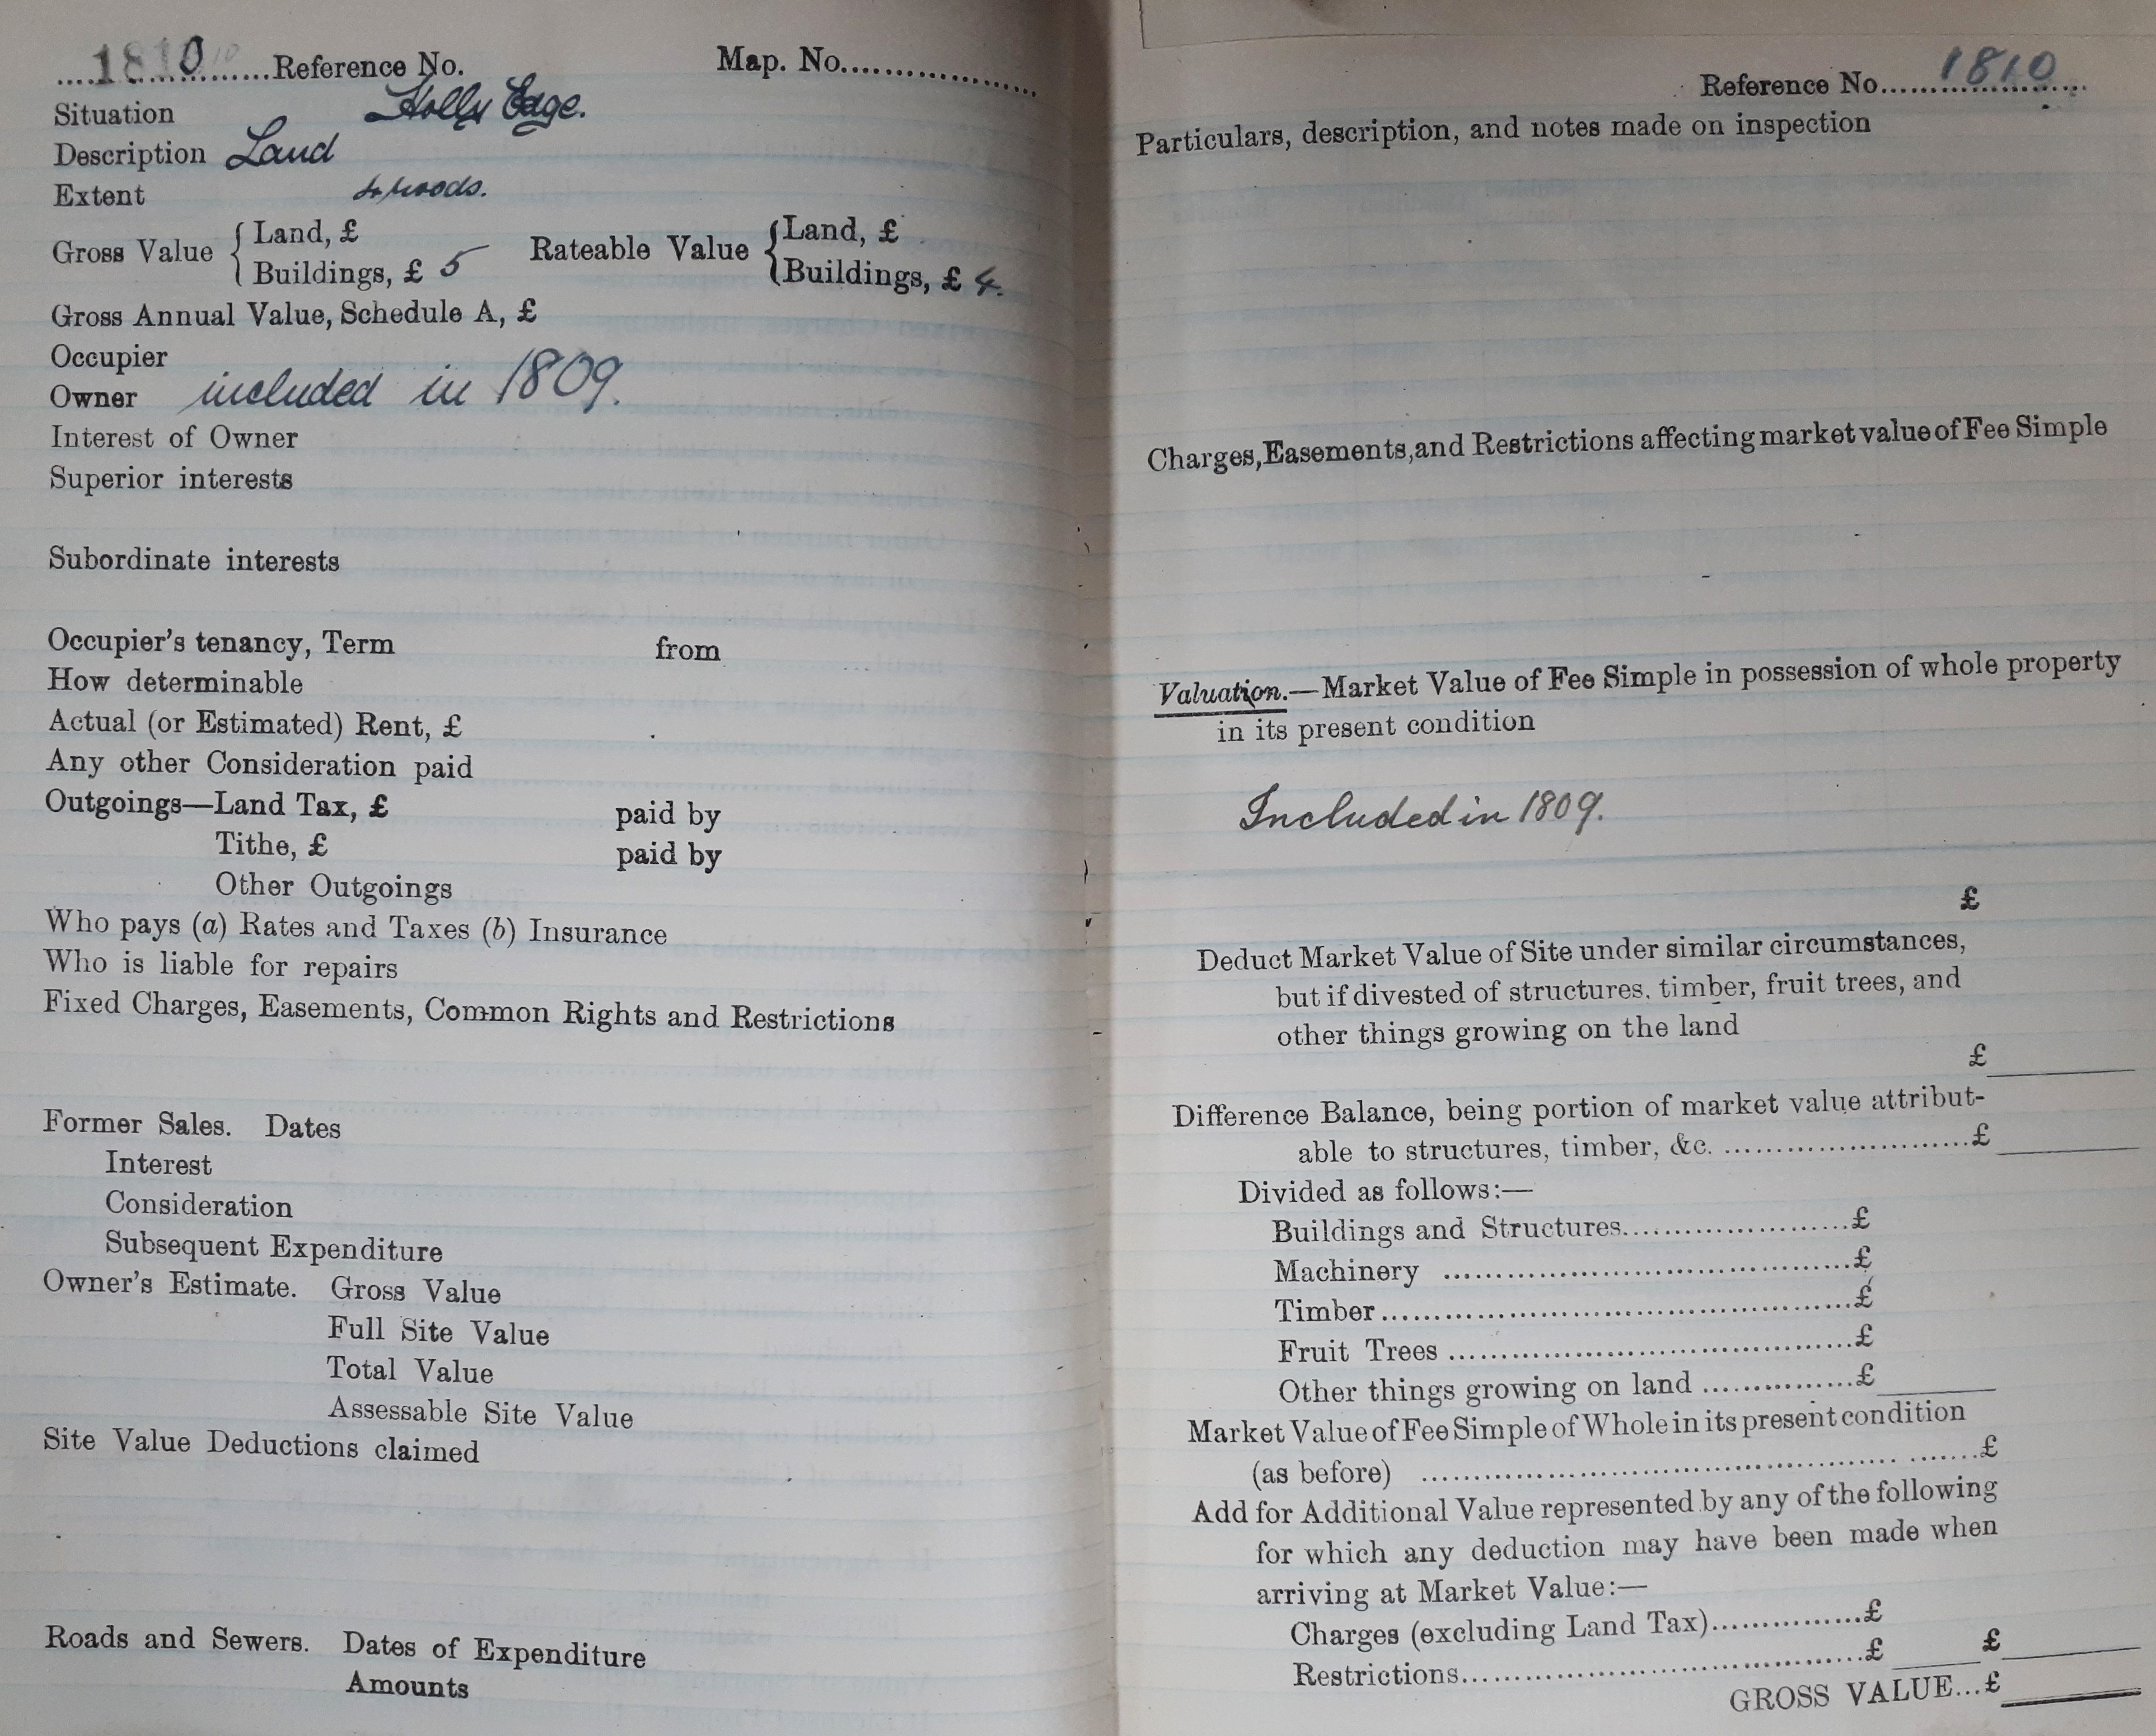 1810 Reference No. Map. No.
Situation Holly Edge.
Description Land
Extent 4 roods.
Gross Value { Land, £ Rateable Value { Land, £
Buildings, £ 5 Buildings, £ 4.
Gross Annual Value, Schedule A, £
Occupier
Owner included in 1809.
Interest of Owner
Superior interests
Subordinate interests
Occupier's tenancy, Term from
How determinable
Actual (or Estimated) Rent, £
Any other Consideration paid
Outgoings—Land Tax, £ paid by
Tithe, £ paid by
Other Outgoings
Who pays (a) Rates and Taxes (b) Insurance
Who is liable for repairs
Fixed Charges, Easements, Common Rights and Restrictions
Former Sales. Dates
Interest
Consideration
Subsequent Expenditure
Owner's Estimate. Gross Value
Full Site Value
Total Value
Assessable Site Value
Site Value Deductions claimed
Roads and Sewers. Dates of Expenditure
Amounts
Reference No. 1810
Particulars, description, and notes made on inspection
Charges, Easements, and Restrictions affecting market value of Fee Simple
Valuation.—Market Value of Fee Simple in possession of whole property
in its present condition
Included in 1809.
£
Deduct Market Value of Site under similar circumstances,
but if divested of structures, timber, fruit trees, and
other things growing on the land
£
Difference Balance, being portion of market value attribut-
able to structures, timber, &c. £
Divided as follows:—
Buildings and Structures £
Machinery £
Timber £
Fruit Trees £
Other things growing on land £
Market Value of Fee Simple of Whole in its present condition
(as before) £
Add for Additional Value represented by any of the following
for which any deduction may have been made when
arriving at Market Value:—
Charges (excluding Land Tax) £
Restrictions £ £
GROSS VALUE... £